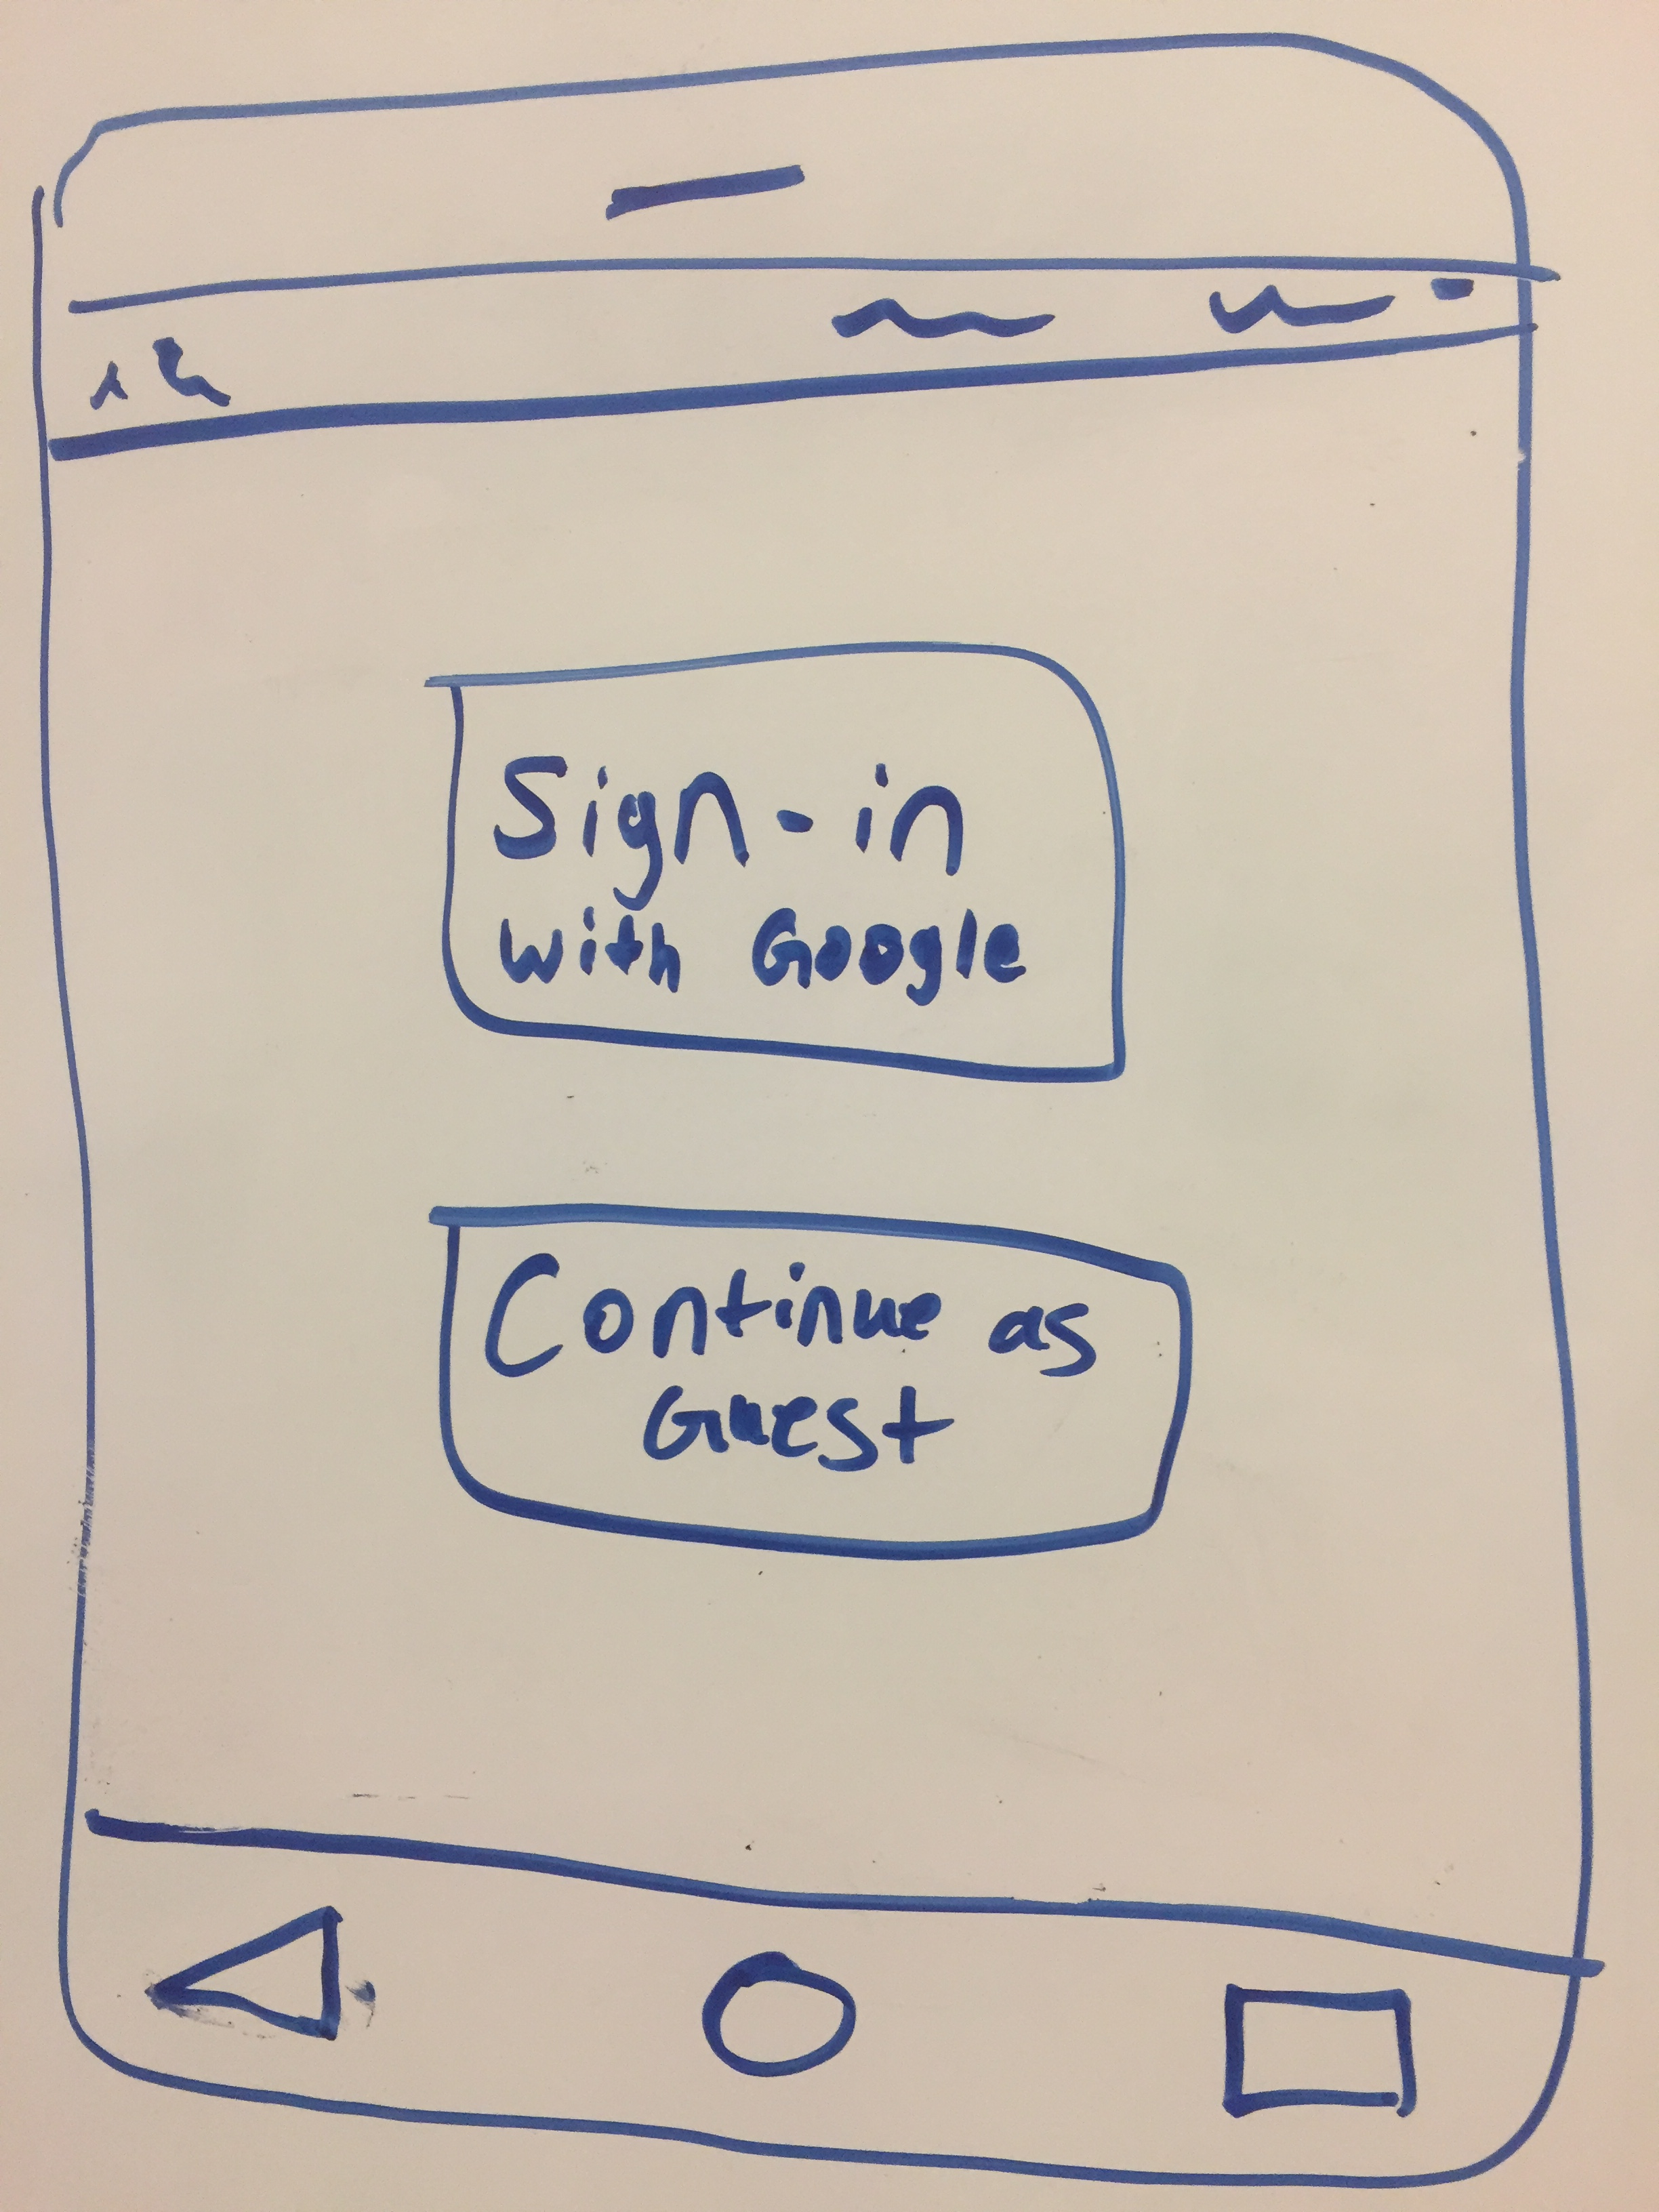 Sign-in
with Google
Continue as
Guest